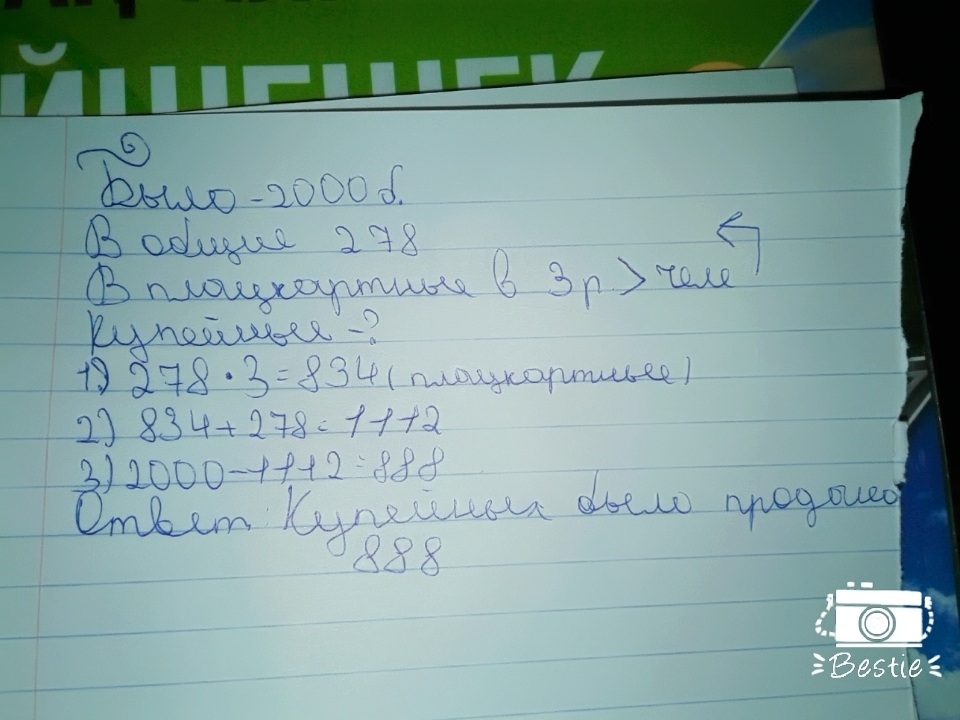 ЙЩЕЩЕК
Было - 2000 б.
В общие 278
В плацкартные в 3 р > чем
Купейные - ?
1) 278 · 3 = 834 ( плацкартные )
2) 834 + 278 = 1112
3) 2000 - 1112 = 888
Ответ: Купейных было продано
888
Bestie